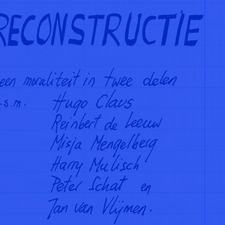 RECONSTRUCTIE
een moraliteit in twee delen
.s.m. Hugo Claus
Reinbert de Leeuw
Misja Mengelberg
Harry Mulisch
Peter Schat en
Jan van Vlijmen.